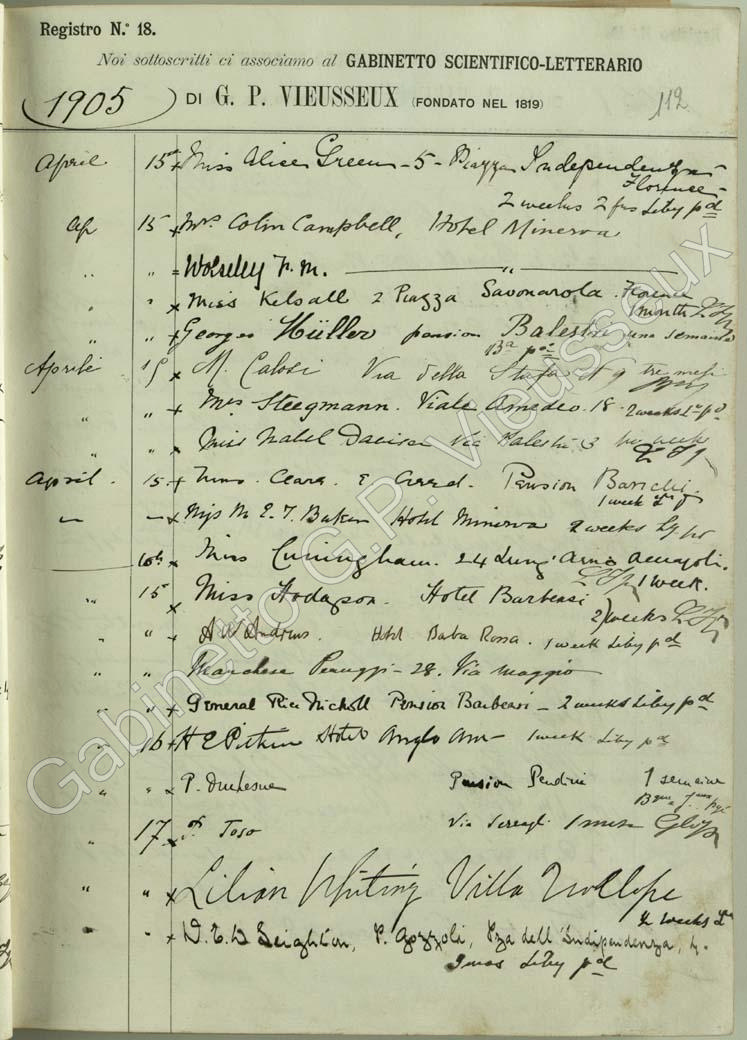 Registro N.° 18.
Noi sottoscritti ci associamo al GABINETTO SCIENTIFICO-LETTERARIO
1905 DI G. P. VIEUSSEUX (FONDATO NEL 1819) 112
April 15 Miss Alice Green - 5 - Piazza Independenza
Florence
2 weeks 2 frs Liby pd
Ap 15 Mrs Colin Campbell, Hotel Minerva
" " Wolseley F. M. "
" Miss Kelsall 2 Piazza Savonarola. Florence
1 month
" " Georges Müller pension Balestri una semaine
Aprile 15 M. Calosi Via della Stufa tre mesi
" " Mrs Steegmann. Viale Amedeo. 18. 2 weeks
" Miss Mabel
April. 15 Clara E. Pension Barichi
1 week
Miss M E. T. Baker Hotel Minerva 2 weeks
Miss Cuningham. 24 Lung' Arno Acciajoli.
1 week.
" 15 Miss Hodgson. Hotel Barbensi
2 weeks
" " A W Andrews. Hotel Baba Rossa. 1 week Liby pd
" " Marchese Peruzzi - 28. Via Maggio
" " General Rice Nicholl Pension Barbensi - 2 weeks Liby pd
" 16 H E Pitkin Hotel Anglo Am 1 week Liby pd
" " P. Duchesne Pension Pendini 1 semaine
" 17 Toso Via Serragli 1 mese
" " Lilian Whiting Villa Trollope
2 weeks
" D. E. D Leighton, P. Gozzoli, Pza dell' Indipendenza, 4.
mos Liby pd
Gabinetto G.P. Vieusseux